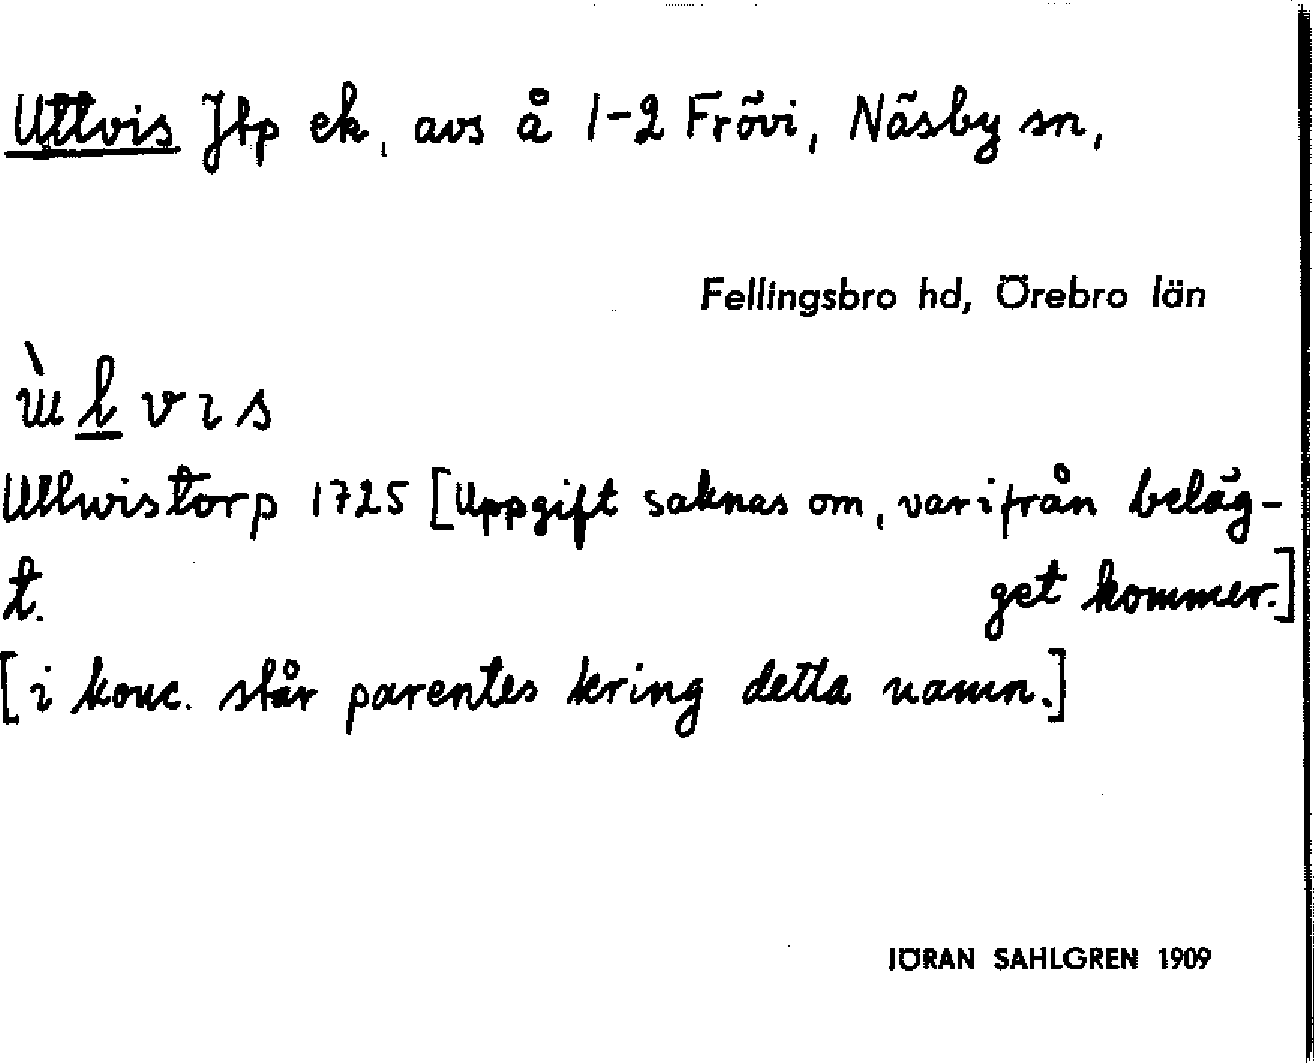 Uttvis Jtp ek, avs å 1-2 Frövi, Näsby sn,
Fellingsbro hd, Örebro län
Ullwistorp 1725 [Uppgift saknas om, varifrån beläg-
t. get kommer.]
[i konc. står parentes kring detta namn.]
JÖRAN SAHLGREN 1909